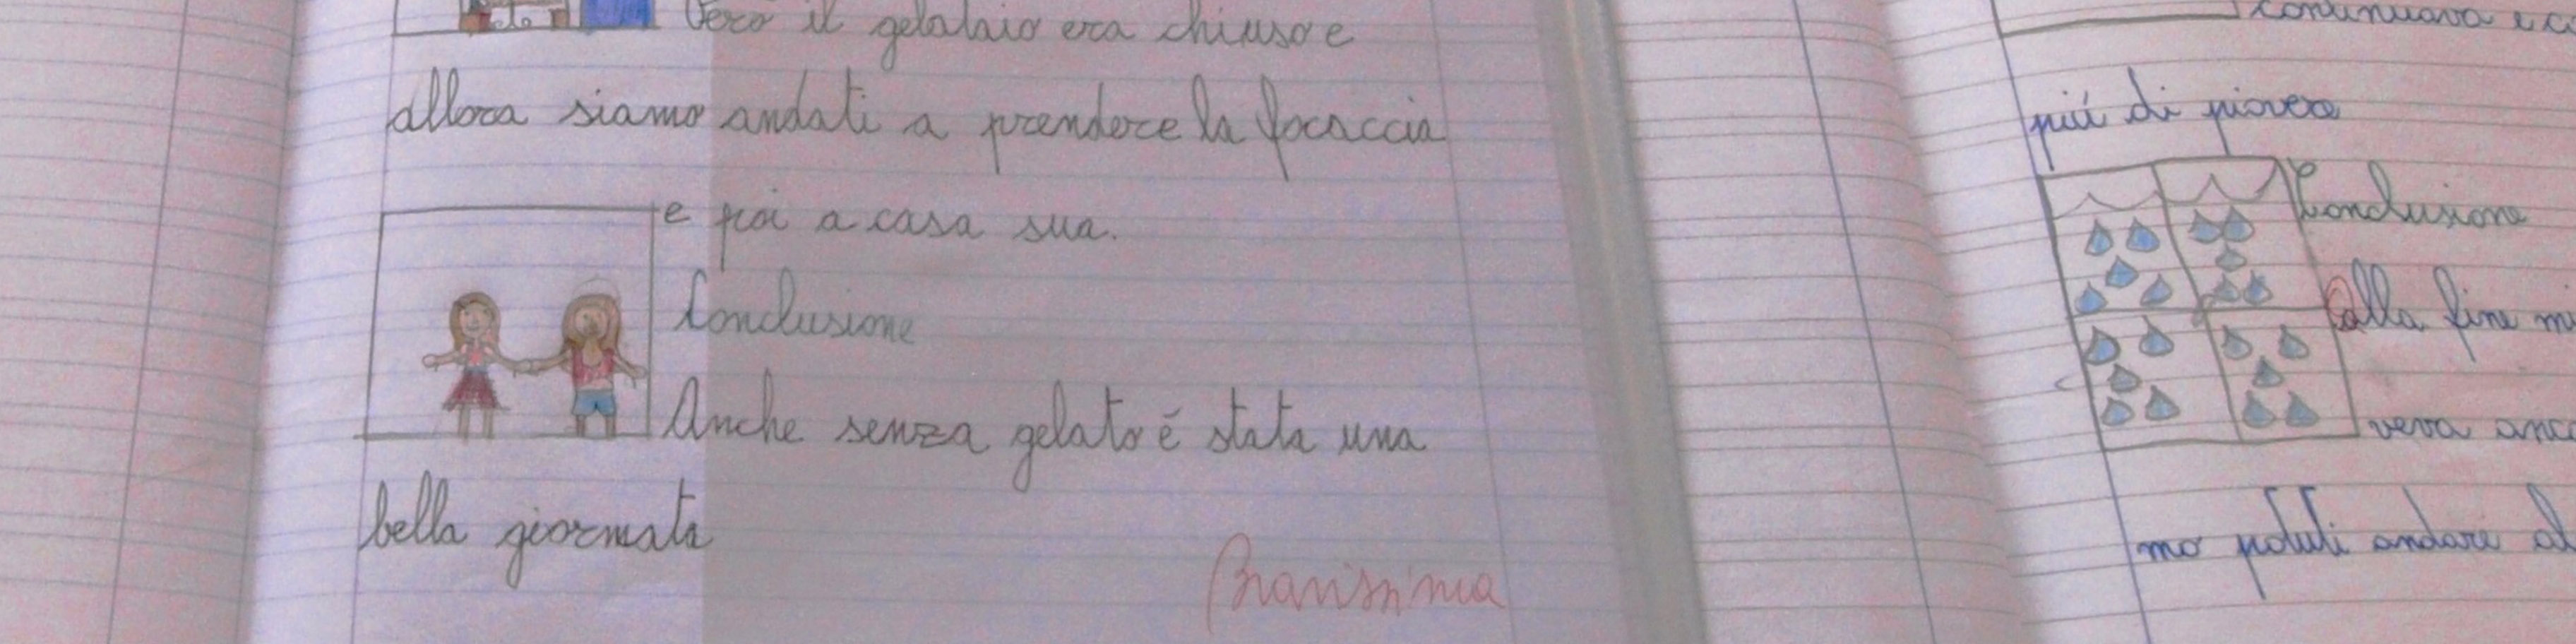 Però il gelataio era chiuso e
allora siamo andati a prendere la focaccia
e poi a casa sua.
Conclusione
Anche senza gelato é stata una
bella giornata
Bravissima
continuava e
piú di piovere
Conclusione
alla fine
veva
mo potuti andare